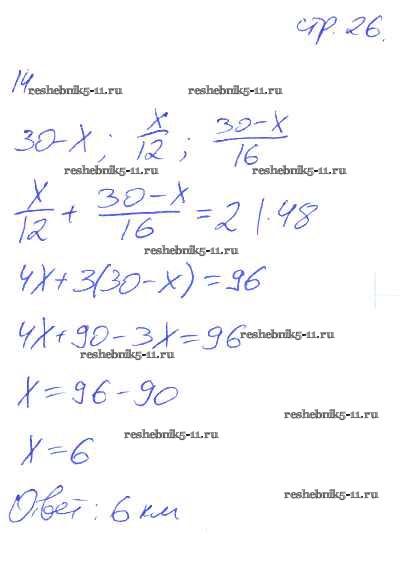 стр. 26.
14
reshebnik5-11.ru reshebnik5-11.ru
30-x; x/12; (30-x)/16
reshebnik5-11.ru reshebnik5-11.ru
x/12 + (30-x)/16 = 2 |·48
reshebnik5-11.ru
4x+3(30-x)=96
4x+90-3x=96
reshebnik5-11.ru
reshebnik5-11.ru
x=96-90
reshebnik5-11.ru
reshebnik5-11.ru
x=6
reshebnik5-11.ru
Ответ: 6 км